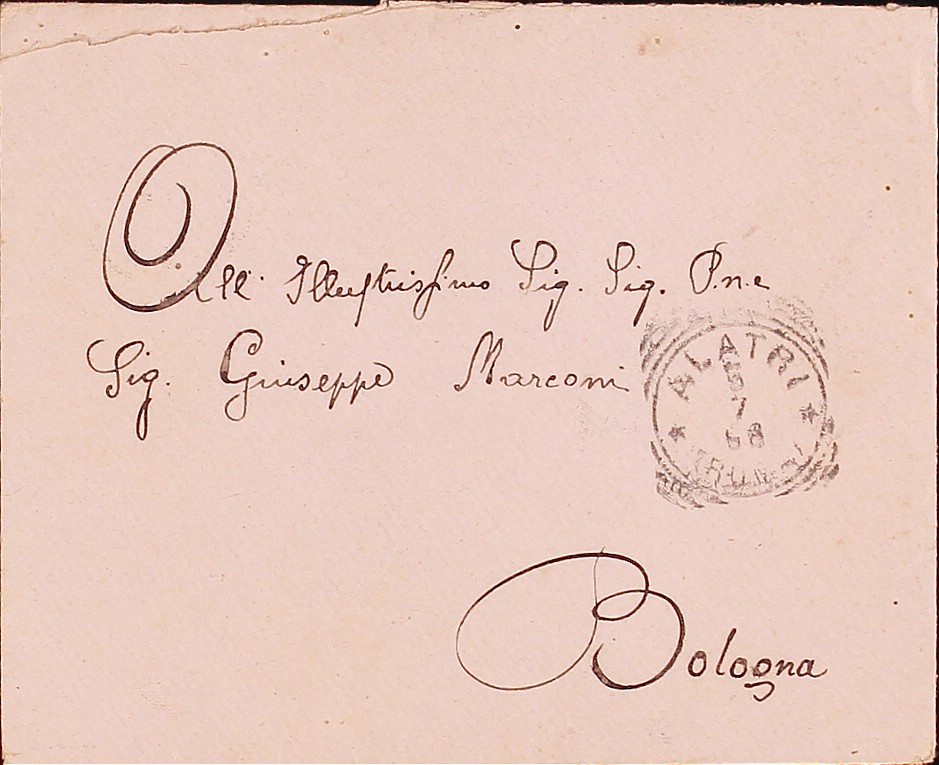 All' Illustrissimo Sig. Sig. P.ne
Sig. Giuseppe Marconi
ALATRI
7
Bologna